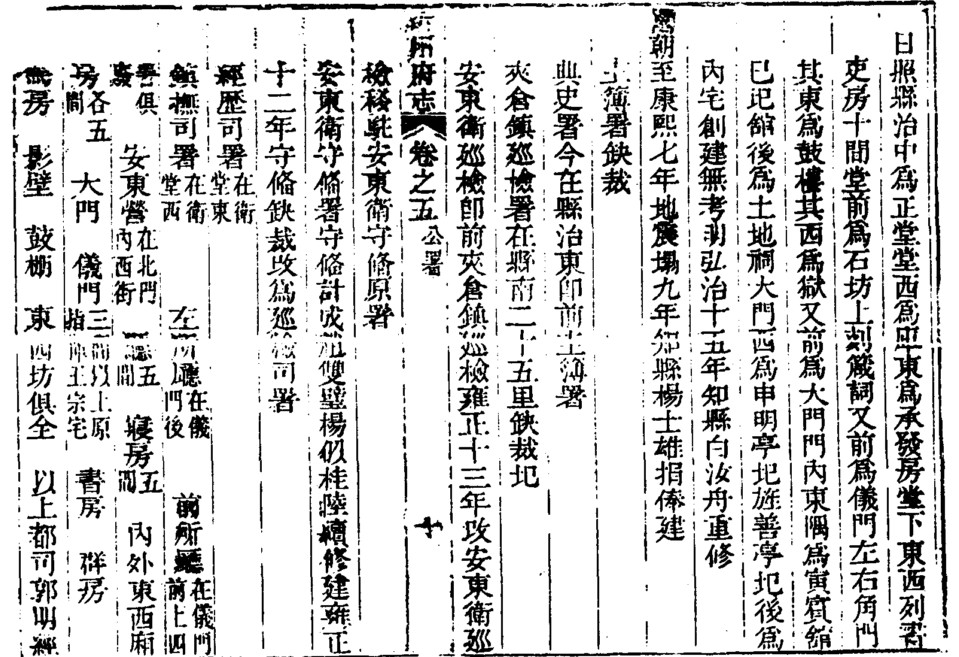 日照縣治中爲正堂堂西爲庫東爲承發房堂下東西列書
吏房十間堂前爲石坊上刻箴詞又前爲儀門左右角門
其東爲鼓樓其西爲獄又前爲大門門內東隅爲寅賓館
已圮舘後爲土地祠大門西爲申明亭圮旌善亭圮後爲
內宅創建無考明弘治十五年知縣白汝舟重修
朝至康熙七年地震塌九年知縣楊士雄捐俸建
主簿署缺裁
典史署今在縣治東卽前主簿署
夾倉鎮巡檢署在縣南二十五里缺裁圮
安東衛巡檢卽前夾倉鎮巡檢雍正十三年改安東衛巡
沂州府志 卷之五 公署 十
檢移駐安東衛守備原署
安東衛守備署守備計成 雙璧楊似桂陸續修建雍正
十二年守備缺裁改爲巡檢司署
經歷司署在衛堂東
鎮撫司署在衛堂西 左所廳在儀門後 前所廳在儀門前上四
俱 安東營在北門內西街 五間 寢房五間 內外東西廂
房各五間 大門 儀門三間以上原指揮王宗宅 書房 群房
房 影壁 鼓棚 東西坊俱全 以上都司郭明經